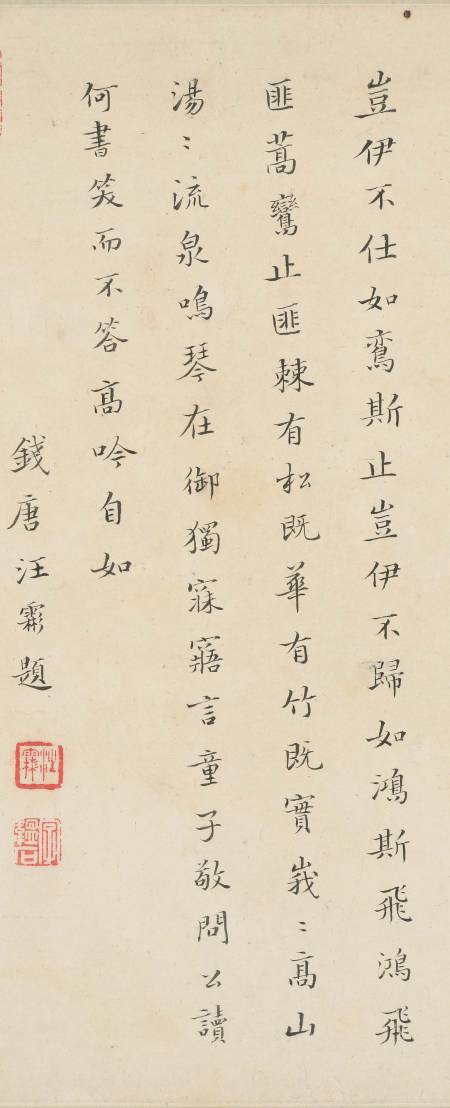 豈伊不仕如鸞斯止豈伊不歸如鴻斯飛鴻飛
匪蒿鸞止匪棘有松既華有竹既實峩〻髙山
湯〻流泉鳴琴在御獨寐寤言童子敬問公讀
何書笑而不答髙吟自如
錢唐汪霦題
汪霦